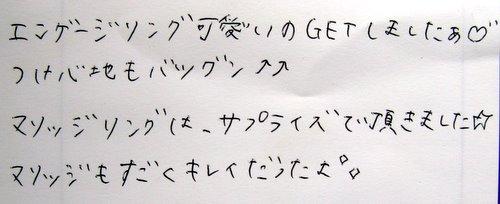 エンゲージリング可愛いのGETしましたぁ♡
つけバ地もバツグン↑↑
マリッジリングは、サプライズで頂きました☆
マリッジもすごくキレイだったよ°。